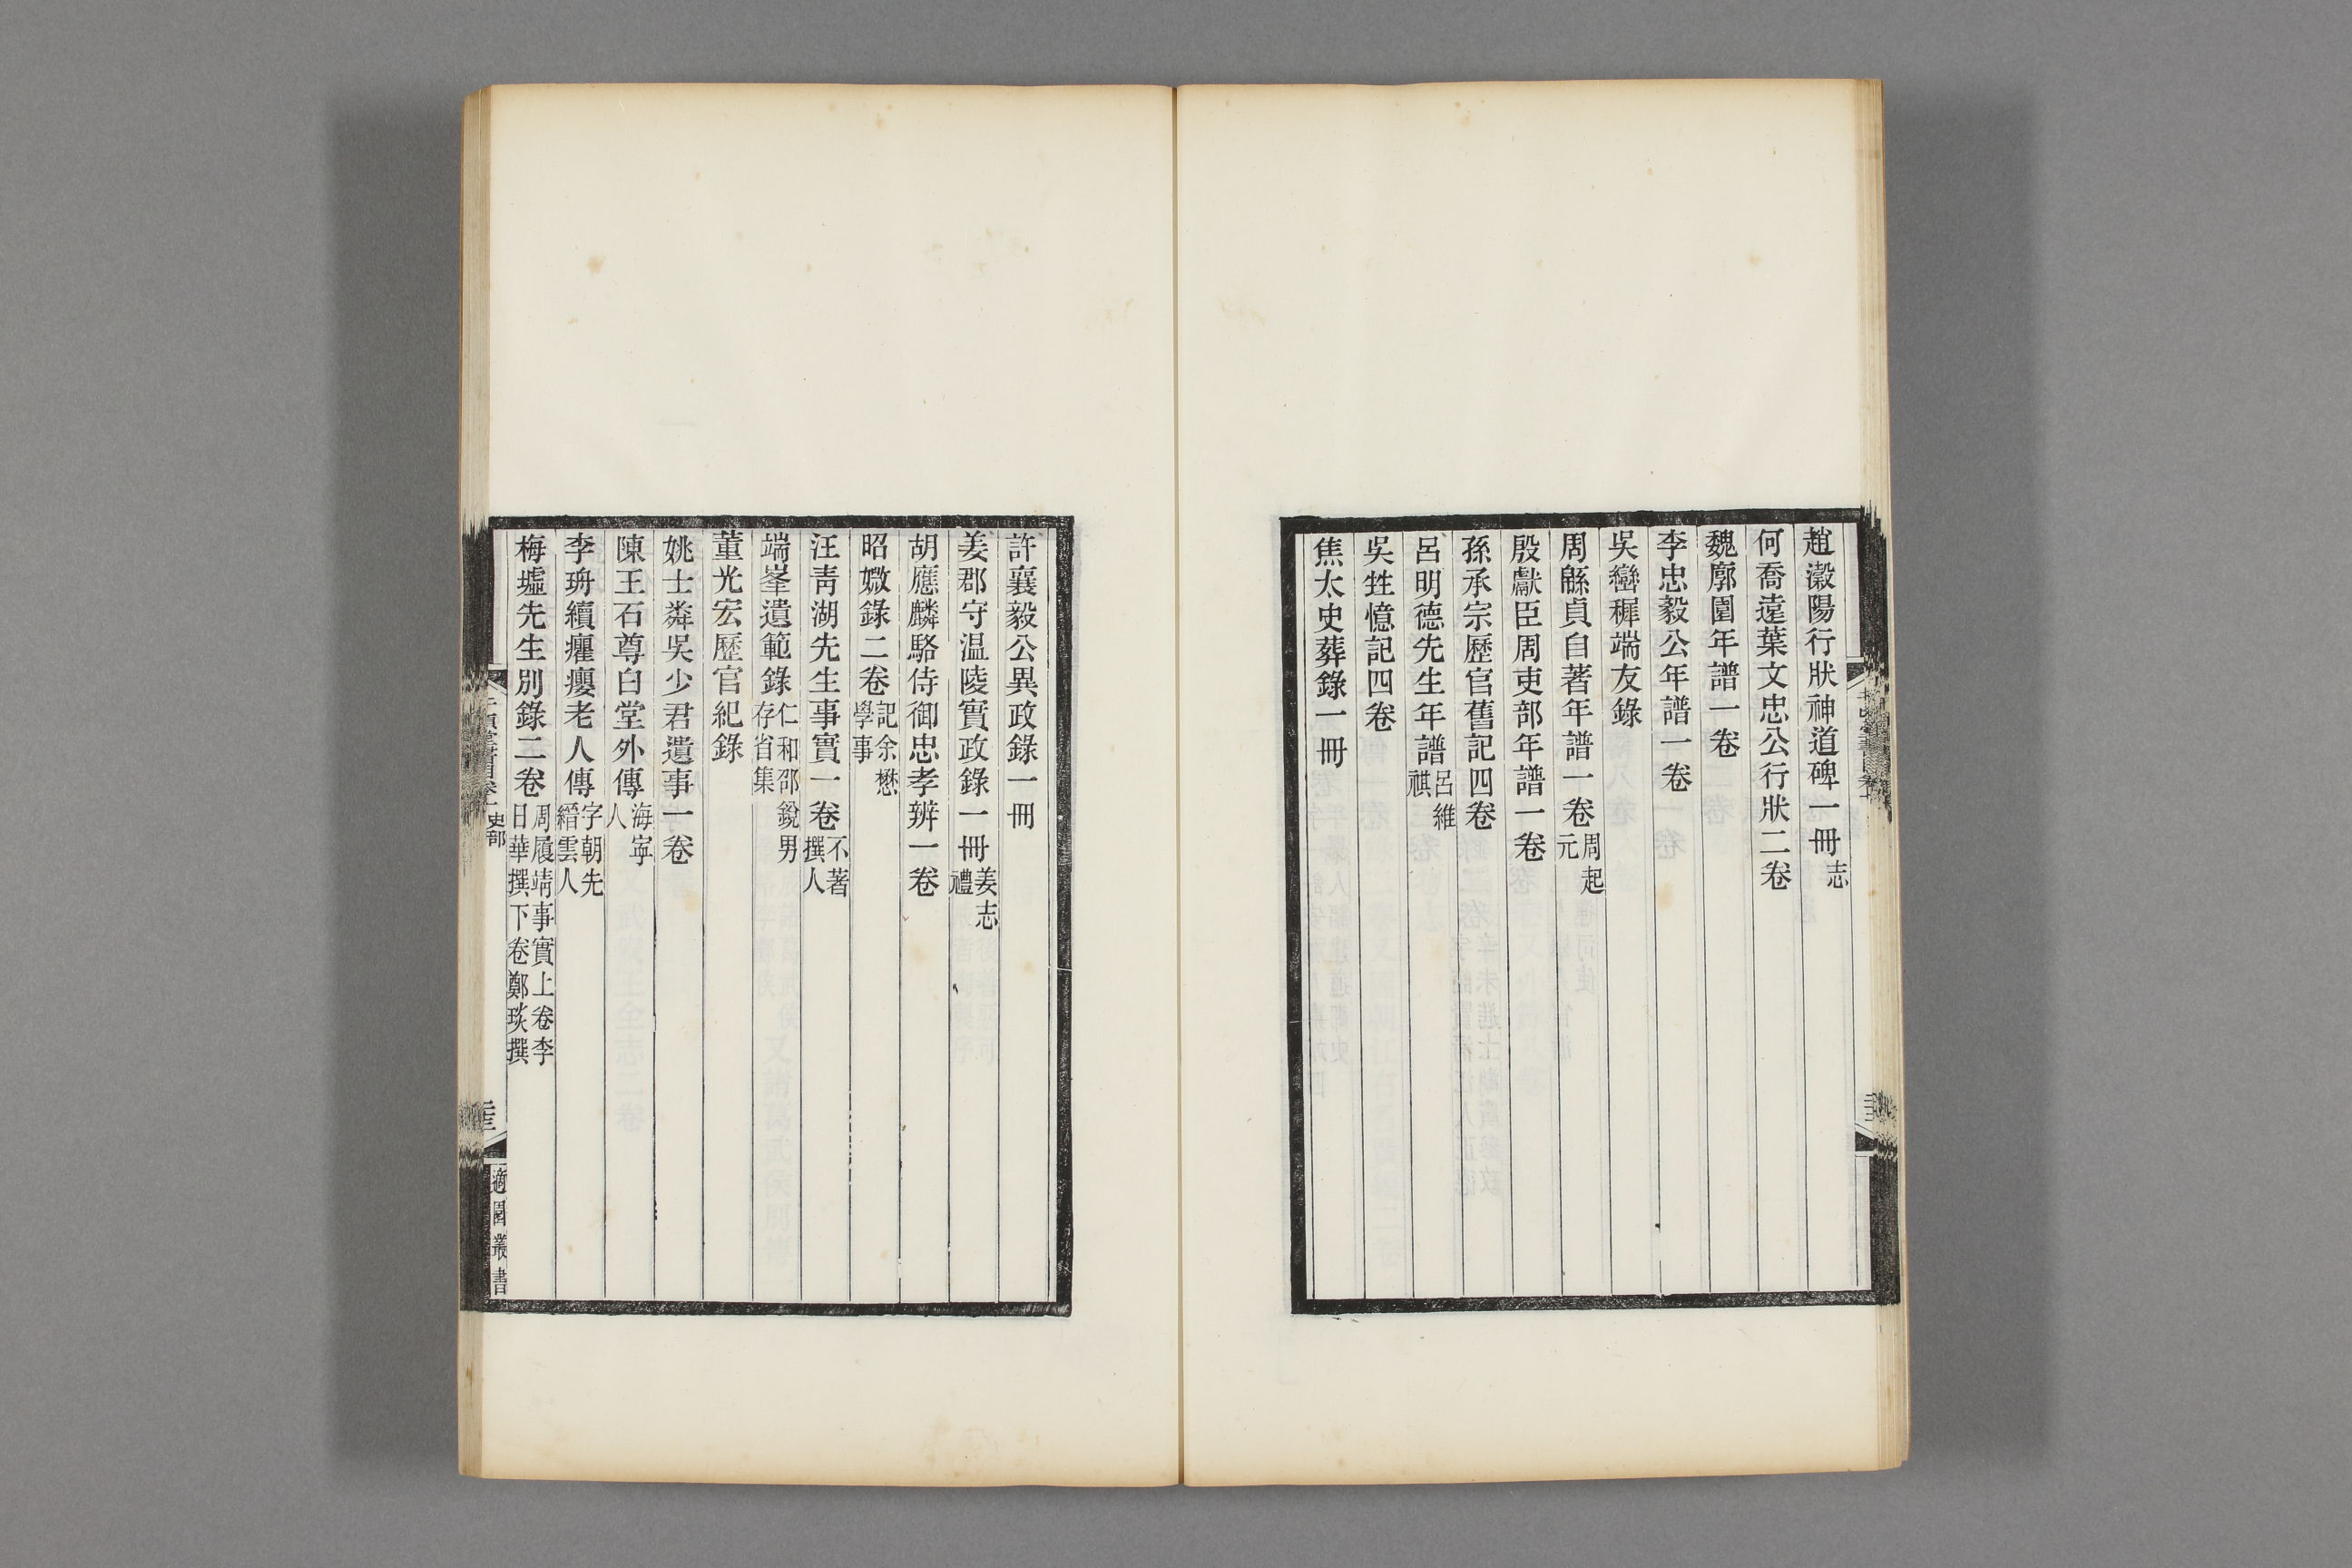 趙瀫陽行狀神道碑一冊志
何喬遠葉文忠公行狀二卷
魏廓園年譜一卷
李忠毅公年譜一卷
吳巒穉端友錄
周繇貞自著年譜一卷周起元
殷獻臣周吏部年譜一卷
孫承宗歷官舊記四卷
呂明德先生年譜呂維祺
吳甡憶記四卷
焦太史葬錄一冊
許襄毅公異政錄一冊
姜郡守温陵實政錄一冊姜志禮
胡應麟駱侍御忠孝辨一卷
昭媺錄二卷記余懋學事
汪青湖先生事實一卷不著撰人
端峯遺範錄仁和邵銳男存省集
董光宏歷官紀錄
姚士粦吳少君遺事一卷
陳王石尊白堂外傳海寧人
李㺹續癯癭老人傳字朝先縉雲人
梅墟先生別錄二卷周履靖事實上卷李日華撰下卷鄭琰撰
千頃堂書目卷十 史部
適園叢書